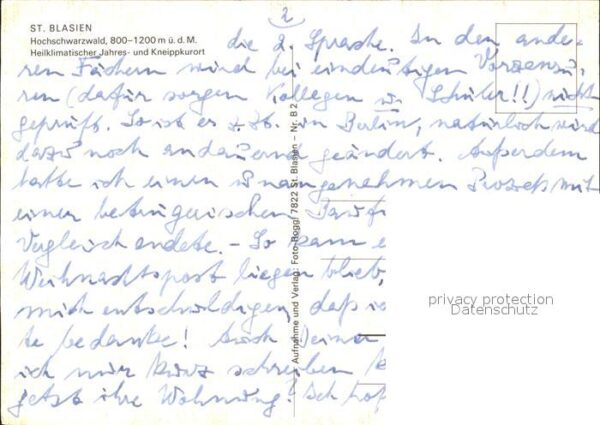 2
ST. BLASIEN
Hochschwarzwald, 800–1200 m ü. d. M.
Heilklimatischer Jahres- und Kneippkurort
die 2. Sprache. In den ande-
ren Fächern wird bei eindeutigen Vorzensu-
ren (dafür sorgen Kollegen u. Schüler!!) nicht
geprüft. So ist es z. Zt. in Berlin, natürlich wird
dazu noch andauernd geändert. Außerdem
hatte ich einen unangenehmen Prozeß mit
einer betrügerischen
Vergleich endete. – So kam
Weihnachtspost liegen blieb,
mich entschuldigen, daß ic
te bedanke! Auch Deine
ich nur kurz schreiben k
jetzt ihre Wohnung? Ich hof
Aufnahme und Verlag: Foto-Roggl 7822 St. Blasien – Nr. B 2
privacy protection
Datenschutz